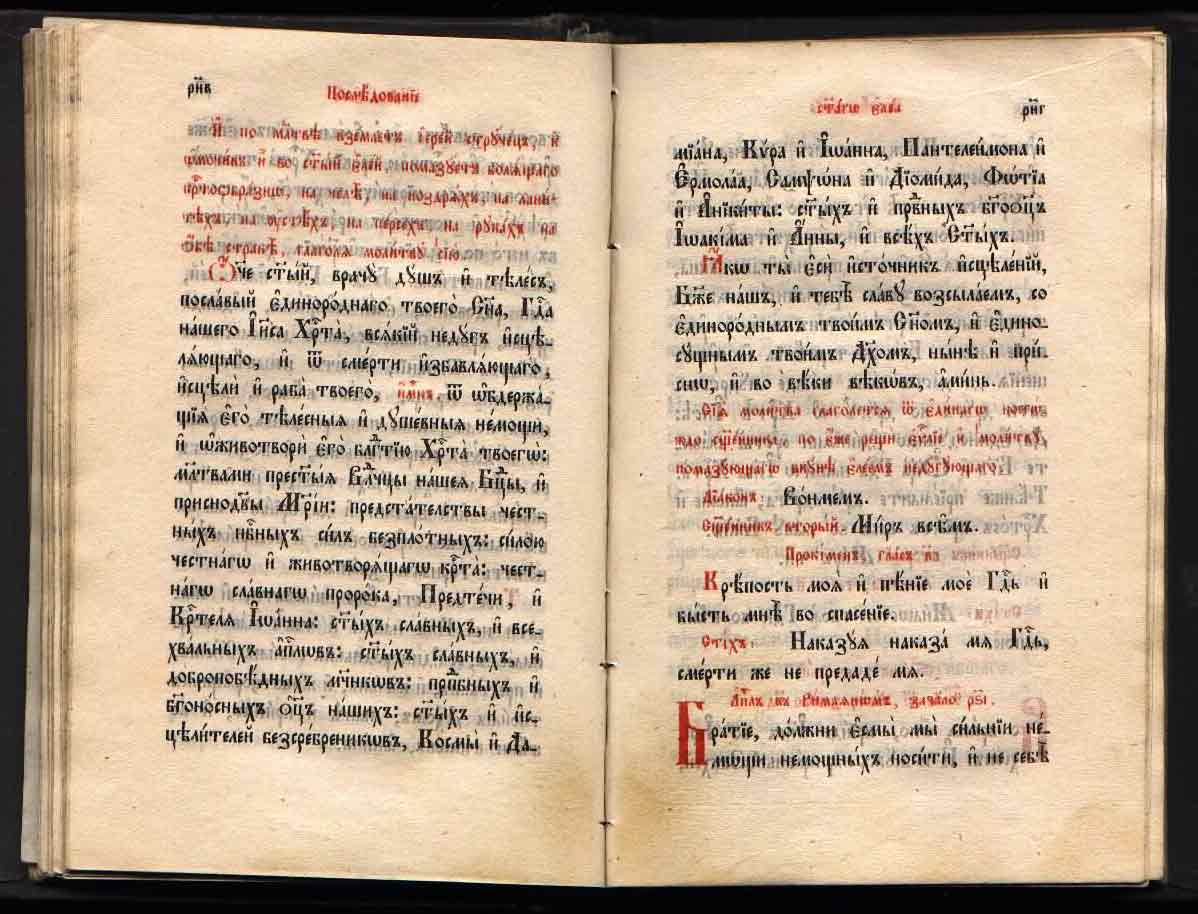 рн҃в
Послѣдованїе
И҆ по мл҃твѣ взе́млетъ і҆ере́й стрꙋче́цъ, и҆
ѡ҆мочи́въ є҆го̀ во ст҃ы́й є҆ле́й, помазꙋетъ боля́щаго
крⷭ҇тоѻбра́знѡ, на челѣ̀, на ноздря́хъ, на лани́-
тѣхъ, на ᲂу҆стѣ́хъ, на пе́рсехъ, на рꙋка́хъ на
ѻ҆бѣ̀ странѣ̀, глаго́ля моли́твꙋ сїю̀.
Ѻ҆́ч҃е ст҃ы́й, врачꙋ̀ дꙋ́шъ и҆ тѣле́съ,
посла́вый є҆диноро́днаго твоего̀ Сн҃а, Гдⷭ҇а
на́шего І҆и҃са Хрⷭ҇та̀, вся́кїй недꙋ́гъ и҆сцѣ-
ля́ющаго, и҆ ѿ сме́рти и҆збавля́ющаго,
и҆сцѣлѝ и҆ раба̀ твоего̀, и҆́м҃къ, ѿ ѡ҆бдержа́-
щїя є҆го̀ тѣле́сныя и҆ дꙋше́вныя не́мощи,
и҆ ѡ҆животворѝ є҆го̀ благⷣтїю Хрⷭ҇та̀ твоегѡ̀:
мл҃твами прест҃ы́я Влⷣчцы на́шея Бцⷣы, и҆
приснодв҃ы Мр҃і́и: предста́тельствы чест-
ны́хъ нбⷭ҇ныхъ си́лъ безпло́тныхъ: си́лою
честна́гѡ и҆ животворя́щагѡ крⷭ҇та̀: чест-
на́гѡ сла́внагѡ проро́ка, Предте́чи, и҆
Крⷭ҇теля І҆ѡа́нна: ст҃ы́хъ сла́вныхъ, и҆ все-
хва́льныхъ а҆пⷭ҇лѡвъ: ст҃ы́хъ сла́вныхъ, и҆
добропобѣ́дныхъ мч҃нкѡвъ: прпⷣбныхъ и҆
бг҃оно́сныхъ ѻ҆ц҃ъ на́шихъ: ст҃ы́хъ и҆ и҆с-
цѣли́телей безсре́бреникѡвъ, Космы̀ и҆ Да-
ст҃а́гѡ є҆ле́а
рн҃г
мїа́на, Кѵ́ра и҆ І҆ѡа́нна, Пантелеи́мона и҆
Є҆рмола́а, Самѱѡ́на и҆ Дїоми́да, Фѡ́тїа
и҆ А҆ники́ты: ст҃ы́хъ и҆ првⷣныхъ бг҃оѻ҆ц҃ъ
І҆ѡаки́ма и҆ А҆́нны, и҆ всѣ́хъ Ст҃ы́хъ.
Ꙗ҆́кѡ ты̀ є҆сѝ и҆сто́чникъ и҆сцѣле́нїй,
Бж҃е на́шъ, и҆ тебѣ̀ сла́вꙋ возсыла́емъ, со
є҆диноро́днымъ твои́мъ Сн҃омъ, и҆ є҆дино-
сꙋ́щнымъ твои́мъ Дх҃омъ, ны́нѣ и҆ при́-
снѡ, и҆ во вѣ́ки вѣкѡ́въ, а҆ми́нь.
Сїѧ̀ моли́тва глаго́лется ѿ є҆ди́нагѡ коегѡ́-
ждо сщ҃е́нника, по є҆́же рещѝ є҆ѵⷢ҇лїе и҆ моли́твꙋ,
помазꙋ́ющагѡ вкꙋ́пѣ є҆ле́емъ недꙋ́гꙋющаго.
Дїа́конъ: Во́нмемъ.
Сщ҃е́нникъ вторы́й: Ми́ръ всѣ̑мъ.
Проки́менъ, гла́съ в҃:
Крѣ́пость моя̀ и҆ пѣ́нїе моѐ Гдⷭ҇ь и҆
бы́сть мнѣ̀ во спасе́нїе.
Сті́хъ: Наказꙋ́я наказа́ мя Гдⷭ҇ь,
сме́рти же не предаде́ мя.
А҆пⷭ҇лъ къ Ри́млянѡмъ, зача́ло рѕ҃і.
Бра́тїе, до́лжни є҆смы̀ мы̀ си́льнїи не́-
мѡщи немощны́хъ носи́ти, и҆ не себѣ̀